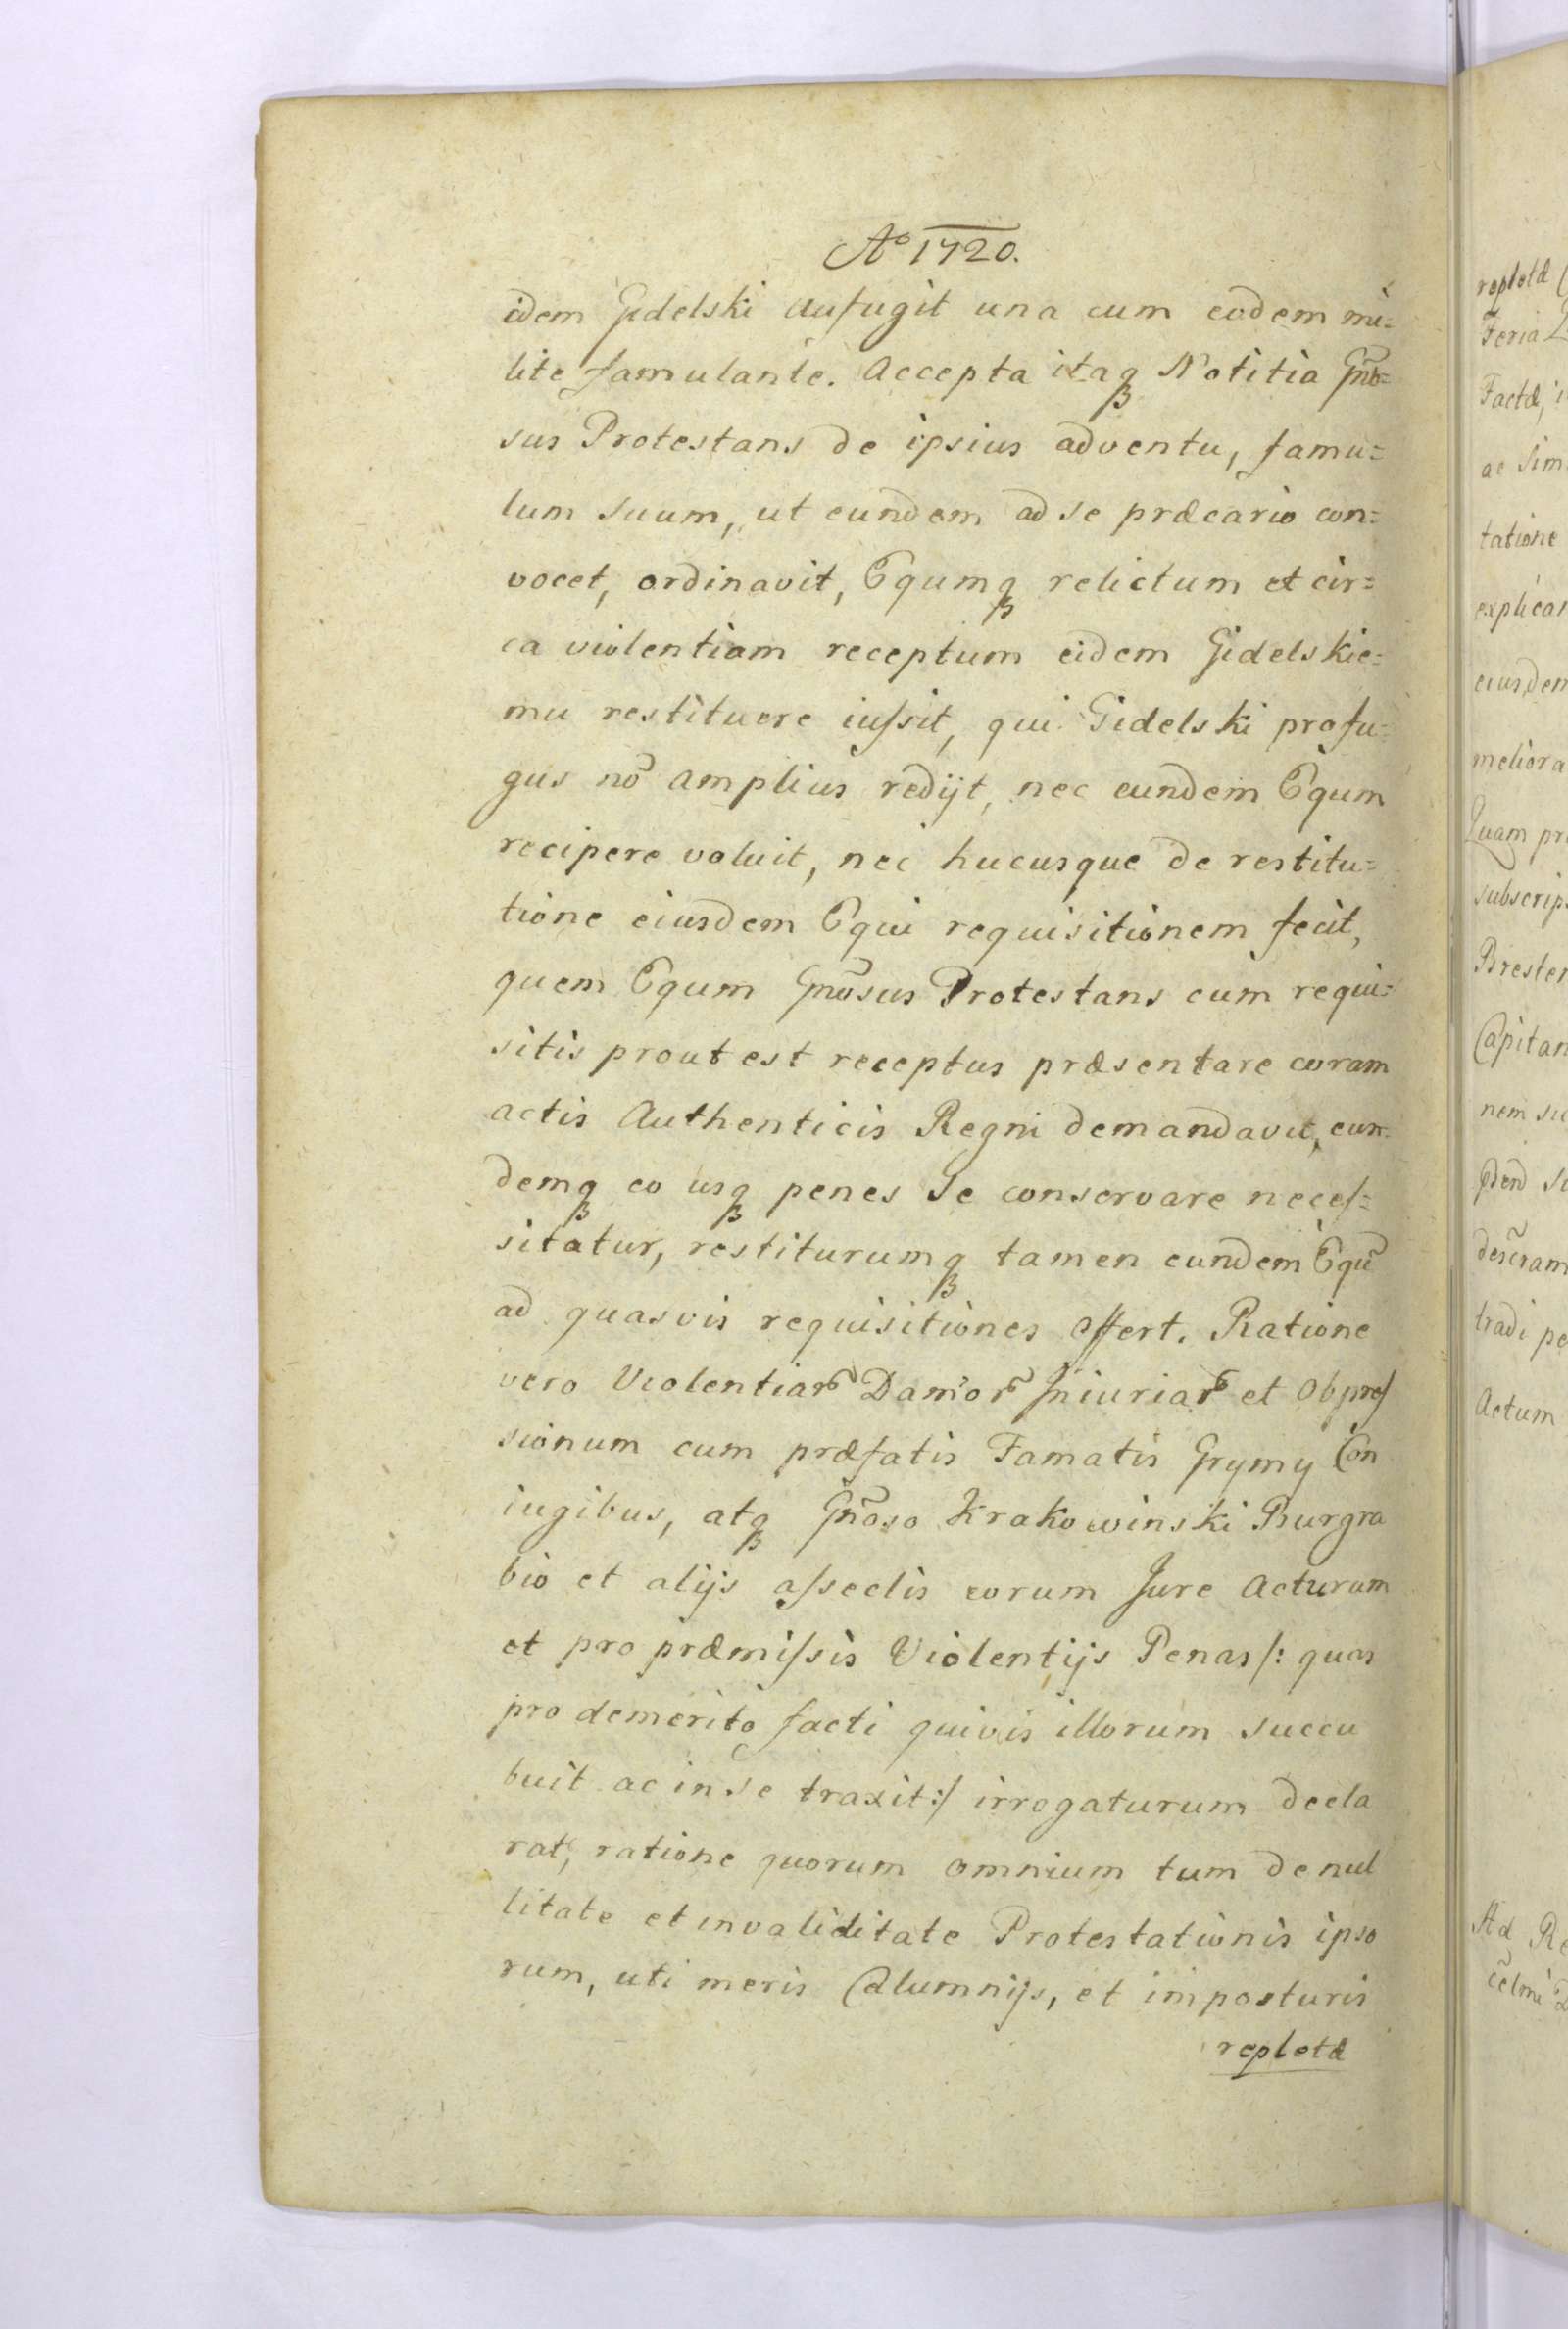 Aº 1720.
idem Gidelski aufugit una cum eodem mi=
lite famulante. Accepta itaqꝫ Notitia Gño=
sus Protestans de ipsius adventu, famu=
lum suum, ut eundem ad se præcario con=
vocet, ordinavit, Equmqꝫ relictum et cir=
ca violentiam receptum eidem Gidelskie=
mu restituere iuſsit, qui Gidelski profu=
gus nõ amplius redijt, nec eundem Equm
recipere voluit, nec hucusque de restitu=
tione eiusdem Equi requisitionem fecit,
quem Equm Gnõsus Protestans cum requi=
sitis prout est receptus præsentare coram
actis Authenticis Regni demandavit, eun=
demqꝫ eo usqꝫ penes Se conservare neceſ=
sitatur, restiturumqꝫ tamen eundem Eqũ
ad quasvis requisitiones offert. Ratione
vero Violentiar̃ Dam̃or̃ Iniuriar̃ et Obpreſ
sionum cum præfatis Famatis Grymy Con
iugibus, atqꝫ Gñoso Krakowinski Burgra
bio et alijs aſseclis eorum Jure Acturum
et pro præmiſsis Violentijs Penas /: quas
pro demerito facti quivis illorum succu
buit ac in se traxit :/ irrogaturum decla
rat, ratione quorum omnium tum de nul
litate et invaliditate Protestationis ipso
rum, uti meris Calumnijs, et imposturis
repletæ
repletæ
Feria
Factæ,
ac Sim
tatione
explicar
eiusdem
meliora
Quam pr
subscrip
Brester
Capitan
nem su
tradi pe
Actum
Ad Re